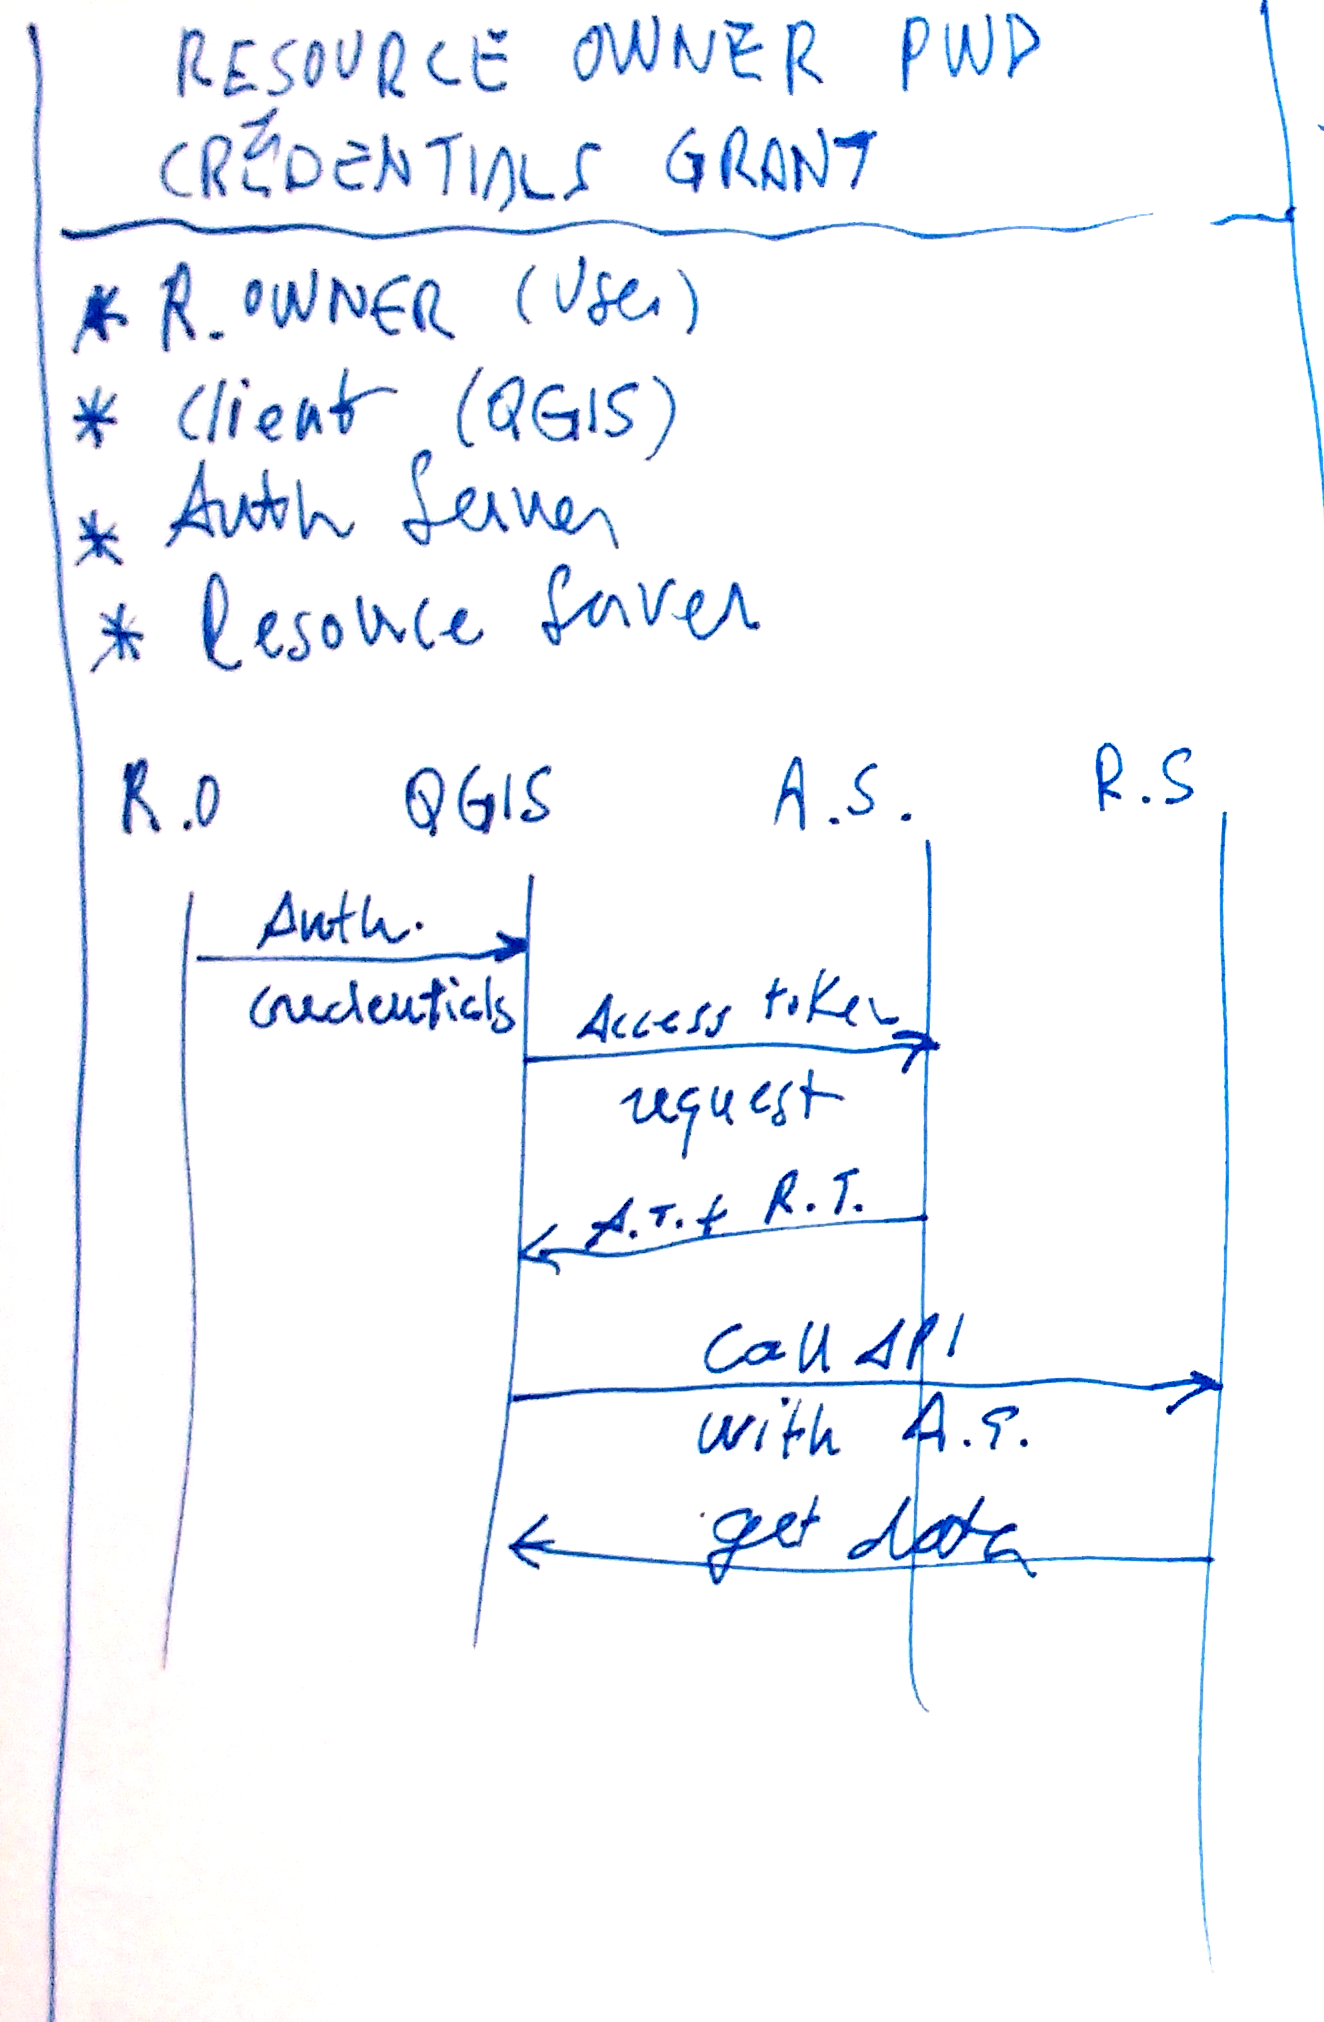 RESOURCE OWNER PWD
CREDENTIALS GRANT
* R. OWNER (User)
* Client (QGIS)
* Auth Server
* Resource Server
R.O QGIS A.S. R.S
Auth.
credentials
Access token
request
A.T. + R.T.
Call API
with A.T.
get data